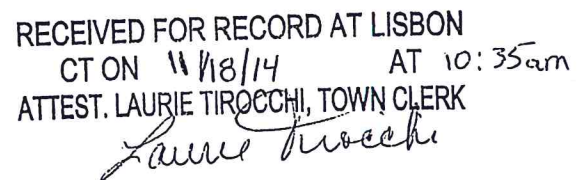 RECEIVED FOR RECORD AT LISBON
CT ON 11/18/14 AT 10:35am
ATTEST. LAURIE TIROCCHI, TOWN CLERK
Laurie Tirocchi